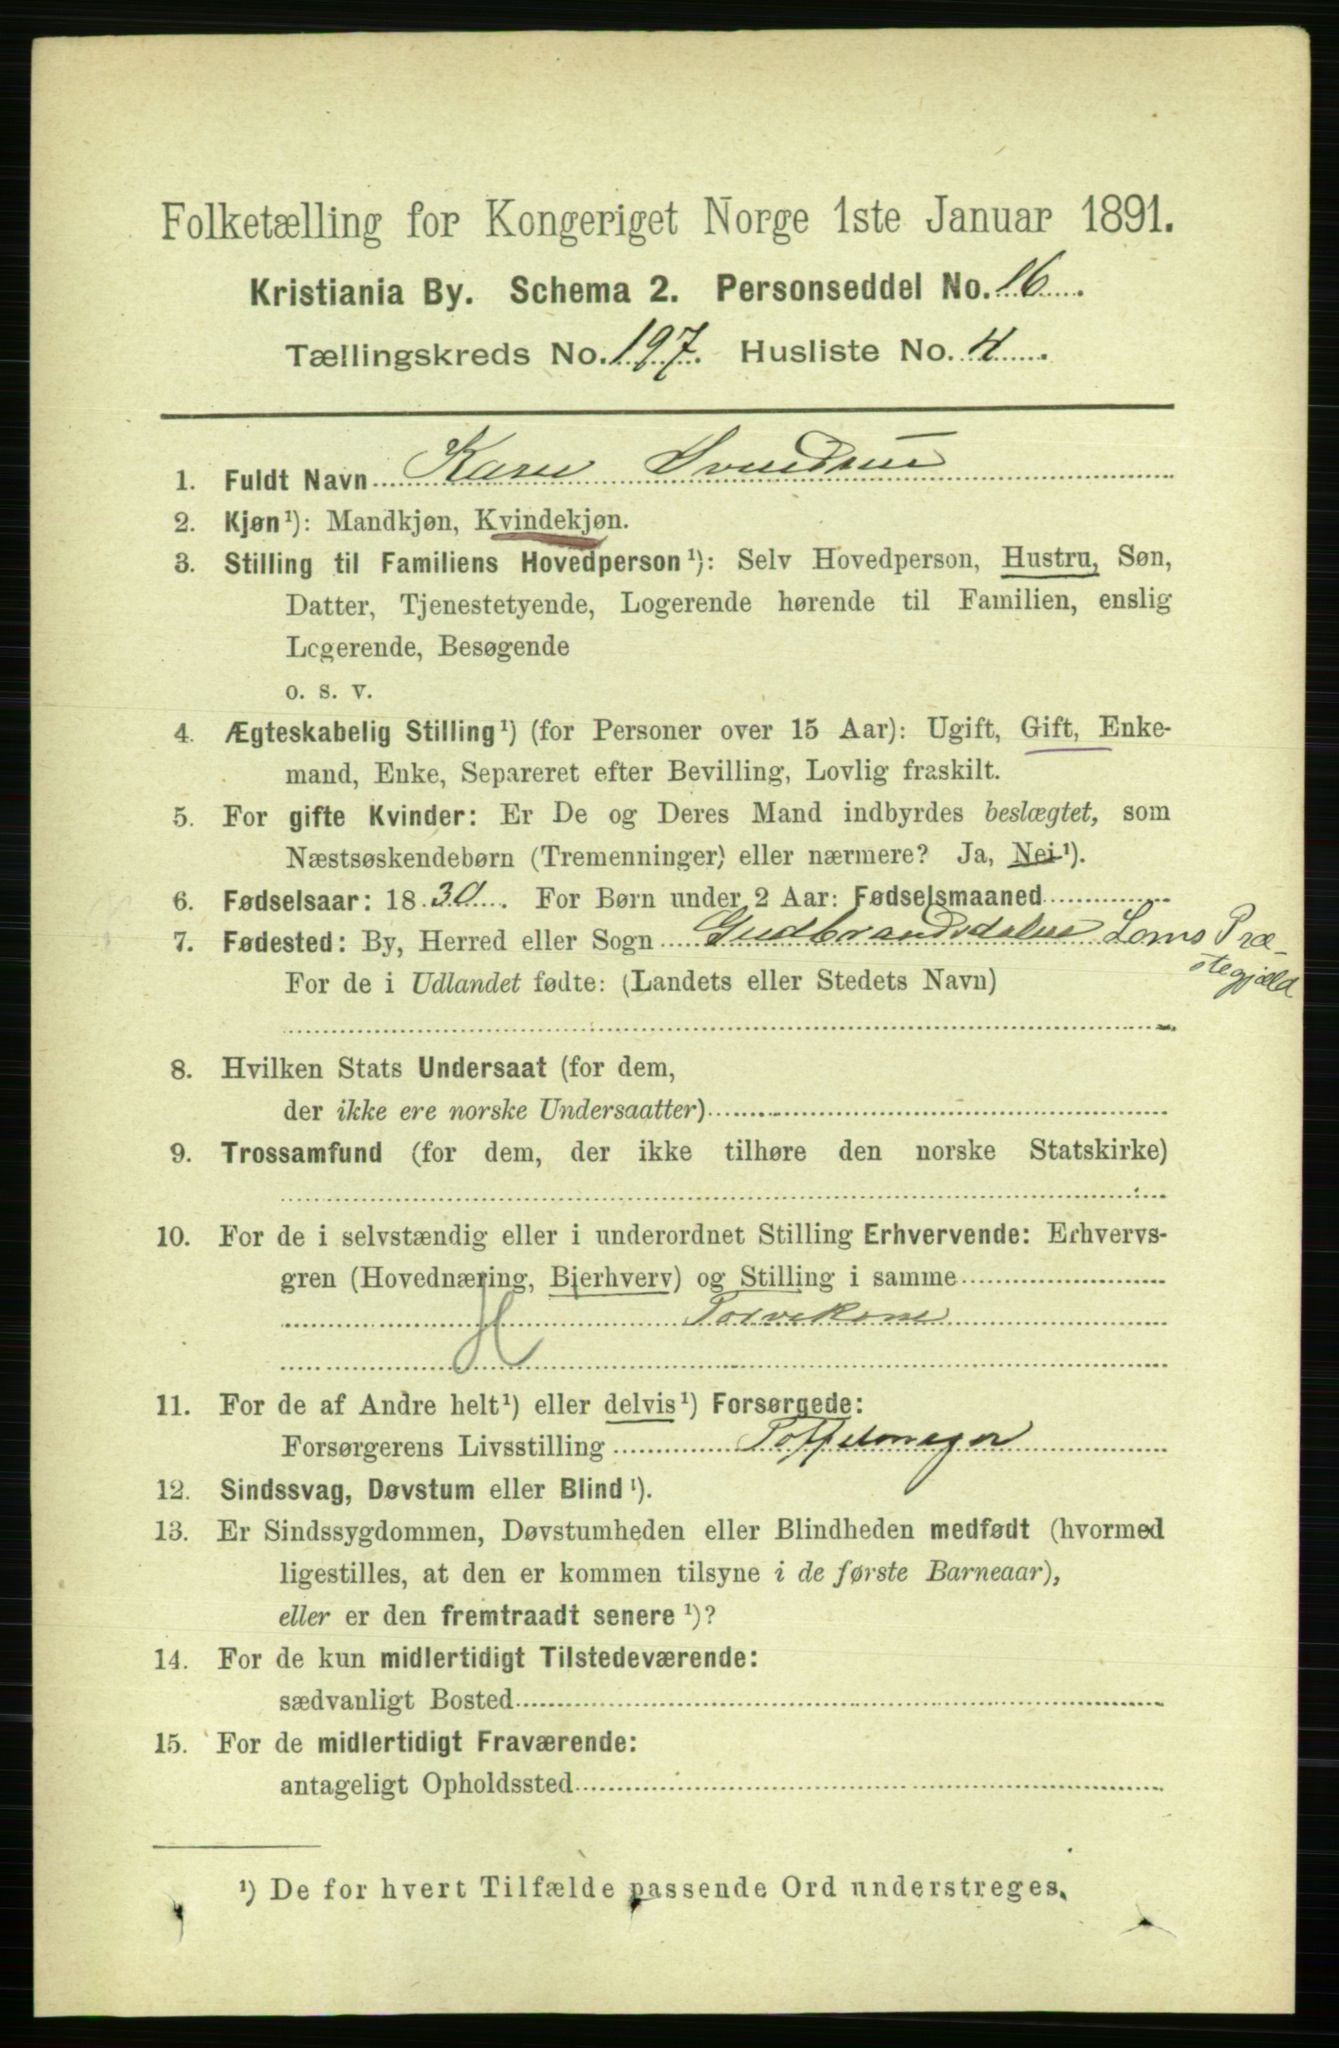 Folketælling for Kongeriget Norge 1ste Januar 1891.
Kristiania By. Schema 2. Personseddel No. 16.
Tællingskreds No. 197. Husliste No. 4.
1. Fuldt Navn Karen Svendsen
2. Kjøn¹): Mandkjøn, Kvindekjøn.
3. Stilling til Familiens Hovedperson¹): Selv Hovedperson, Hustru, Søn,
Datter, Tjenestetyende, Logerende hørende til Familien, enslig
Logerende, Besøgende
o. s. v.
4. Ægteskabelig Stilling¹) (for Personer over 15 Aar): Ugift, Gift, Enke-
mand, Enke, Separeret efter Bevilling, Lovlig fraskilt.
5. For gifte Kvinder: Er De og Deres Mand indbyrdes beslægtet, som
Næstsøskendebørn (Tremenninger) eller nærmere? Ja, Nei¹).
6. Fødselsaar: 1830. For Børn under 2 Aar: Fødselsmaaned
7. Fødested: By, Herred eller Sogn Gudbrandsdalen Loms Præ-
stegjæld
For de i Udlandet fødte: (Landets eller Stedets Navn)
8. Hvilken Stats Undersaat (for dem,
der ikke ere norske Undersaatter)
9. Trossamfund (for dem, der ikke tilhøre den norske Statskirke)
10. For de i selvstændig eller i underordnet Stilling Erhvervende: Erhvervs-
gren (Hovednæring, Bierhverv) og Stilling i samme
H Torvekone
11. For de af Andre helt¹) eller delvis¹) Forsørgede:
Forsørgerens Livsstilling Toffelmager
12. Sindssvag, Døvstum eller Blind¹).
13. Er Sindssygdommen, Døvstumheden eller Blindheden medfødt (hvormed
ligestilles, at den er kommen tilsyne i de første Barneaar),
eller er den fremtraadt senere¹)?
14. For de kun midlertidigt Tilstedeværende:
sædvanligt Bosted
15. For de midlertidigt Fraværende:
antageligt Opholdssted
¹) De for hvert Tilfælde passende Ord understreges.